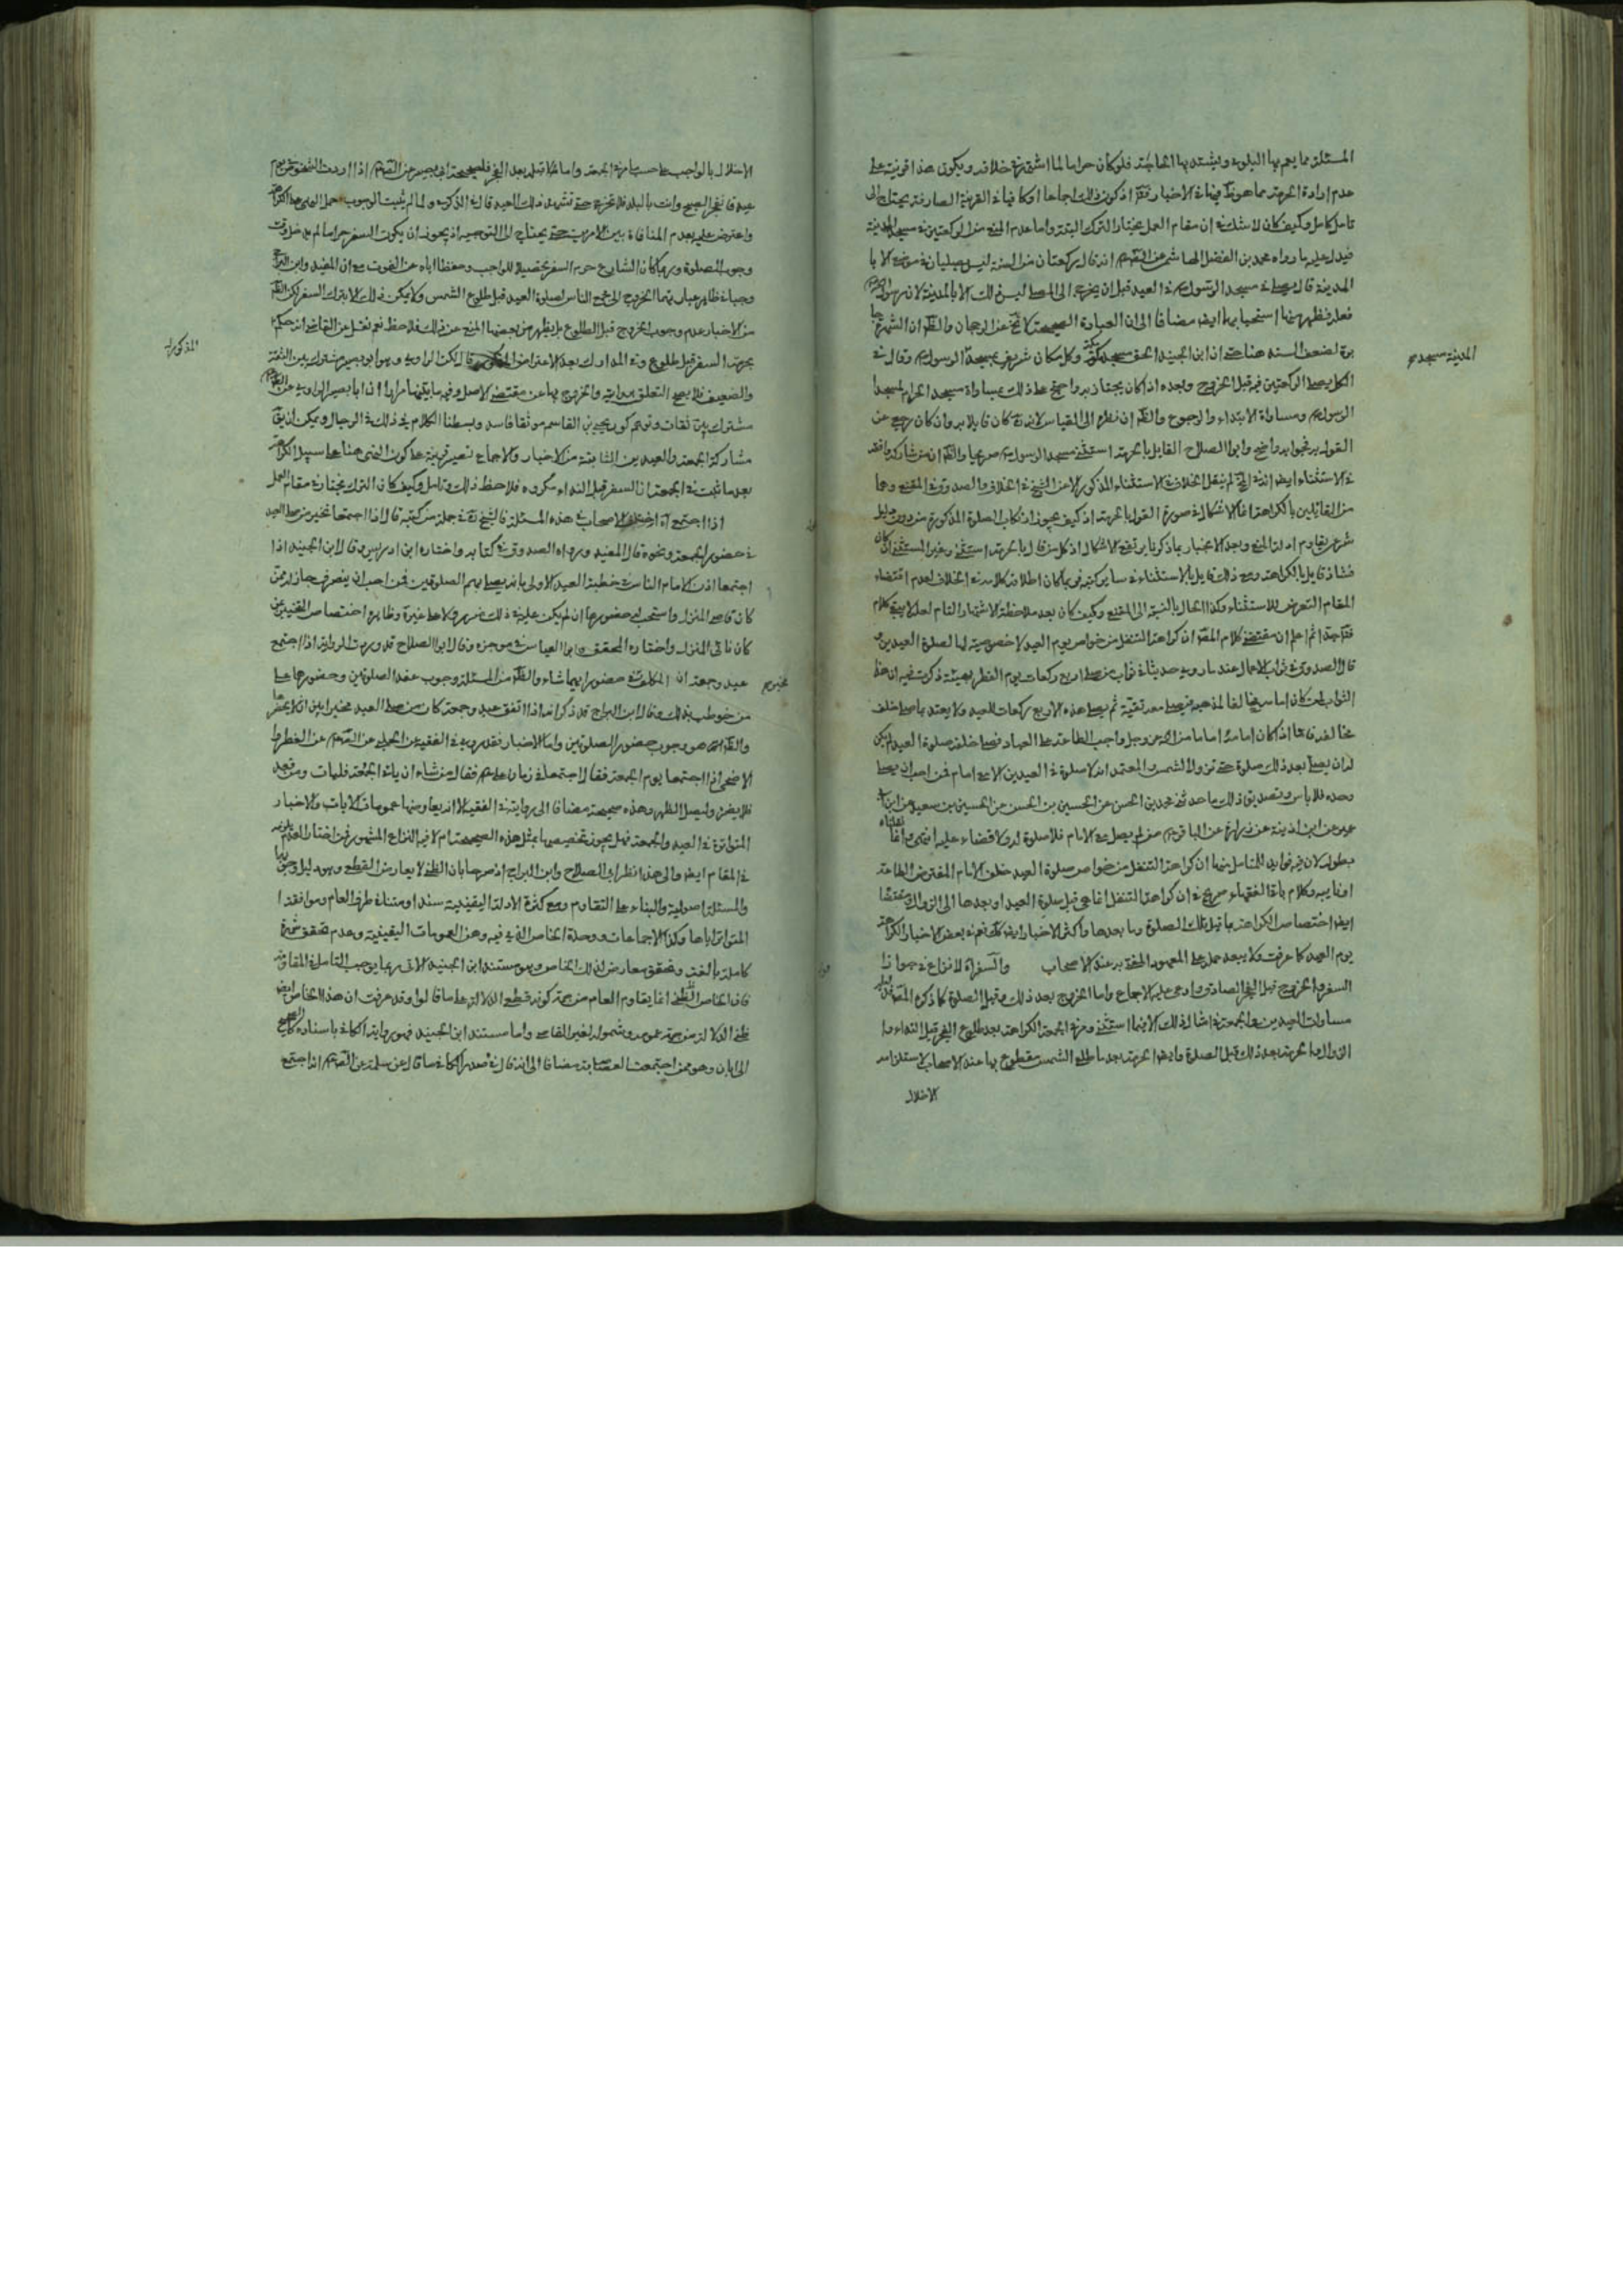 المسئلة مما يعم بها البلوى ويشتد بها الحاجة فلو كان حراما لما اشتهر خلافه ويكون هذا قرينة على
عدم ارادة الحرمة مما هو في الاخبار
تامل كامل وكيف كان لا شك في ان مقام العمل يختار الترك البتة واما عدم المنع من الركعتين في مسجد المدينة
فيدل عليه ما رواه محمد بن الفضل الهاشمي عن انه قال ركعتان من السنة ليس يصليان في موضع الا با
المدينة قال يصلى في مسجد الرسول في العيد قبل ان يخرج الى المصلى ليس ذلك الا بالمدينة لان رسول
فعله فظهر منها استحبابها ايض مضافا الى ان العبارة
لضعف السند هنا حتى اذا ابن الجنيد الحق مسجد مكة وكل مكان شريف بمسجد الرسول وقال في
المدينة مسجد
الكل يصلى الركعتين فيه قبل الخروج وبعده اذا كان يجتاز به واحتج على ذلك بمساواة مسجد الحرام لمسجد
الرسول ومساواة الابتداء والرجوع ان نظره الى القياس لانه كان قايلا به وان كان رجع عن
القول به فجوابه واضح وابو الصلاح القايل بالحرمة استثنى مسجد الرسول صريحا
في الاستثناء ايض لم ينقل الخلاف في الاستثناء المذكور الا عن الشيخ في الخلاف والصدوق في المقنع وهما
من القائلين بالكراهة انما الاشكال في صورة القول بالحرمة اذ كيف يجوز ارتكاب الصلوة المذكورة من دون دليل
شرعي يقاوم ادلة المنع وبعد الانجبار بما ذكرنا يرتفع الاشكال اذ كل من قال بالحرمة استثنى وغير المستثنى
فشاذ قايل بالكراهة ومع ذلك قايل بالاستثناء في ساير كتبه فربما كان اطلاق كلامه في الخلاف لعدم اقتضاء
المقام التعرض للاستثناء وكذا الحال بالنسبة الى المقنع وكيف كان بعد ملاحظة الاشتهار التام لعله لا يبقى كلام
ثم اعلم ان مقتضى كلام المص ان كراهة التنفل من خواص يوم العيد لا خصوصية لها لصلوة العيدين
قال الصدوق في ثواب الاعمال عند ما روى حديثا في ثواب من صلى اربع ركعات يوم الفطر بهيئة ذكرت فيه ان هذا
الثواب لمن كان امامه مخالفا لمذهبه فيصلى معه تقية ثم يصلى هذه الاربع ركعات للعيد ولا يعتد بما صلى خلف
مخالفه فاما اذا كان امامه اماما من الله عز وجل واجب الطاعة على العباد فصلى خلفه صلوة العيد لم يكن
له ان يصلى بعد ذلك صلوة حتى تزول الشمس والمعتمد انه لا صلوة في العيدين الا مع امام فمن احب ان يصلى
وحده فلا باس وتصديق ذلك ما حدثني محمد بن الحسن عن الحسين بن الحسن عن الحسين بن سعيد عن ابن ابي
عمير عن ابن اذينة عن زرارة عن الباقر من لم يصل مع الامام فلا صلوة له ولا قضاء عليه انتهى وانما نقلناه
بطوله لان فيه فوايد للمتامل منها ان كراهة التنفل من خواص صلوة العيد خلف الامام المفترض الطاعة
او نايبه وكلام باقي الفقهاء صريح في ان كراهة التنفل انما هي قبل صلوة العيد او بعدها الى الزوال
ايض اختصاص الكراهة بما قبل تلك الصلوة وما بعدها واكثر الاخبار ايض كك نعم في بعض الاخبار الكراهة
يوم العيد كما عرفت ولا يبعد حمله على المعهود المفتى به عند الاصحاب والسفر لا نزاع في جواز
السفر والخروج قبل الفجر الصادق وادعى عليه الاجماع واما الخروج بعد ذلك وقبل الصلوة كما ذكره
مساوات العيدين والجمعة في امثال ذلك الا فيما استثنى ومر في الجمعة الكراهة بعد طلوع الفجر قبل النداء
الزوال والحرمة بعد ذلك قبل الصلوة وايض الحرمة بعد ما طلع الشمس مقطوع بها عند الاصحاب لاستلزامه
الاخلال
الاخلال بالواجب على حسب ما مر في الجمعة واما ما قبله بعد الفجر فلصحيحة ابي بصير عن اذا اردت الشخوص في يوم
عيد فانفجر الصبح وانت بالبلد فلا تخرج حتى تشهد ذلك العيد قال في الذكرى ولما لم يثبت الوجوب حمل النهى على الكراهة
واعترض عليه بعدم المنافاة بين الامرين حتى يحتاج الى التوجيه اذ يجوز ان يكون السفر حراما لم يدخل وقت
وجوب الصلوة وربما كان الشارع حرم السفر تحصيلا للواجب وحفظا اياه عن الفوت مع ان المفيد وابن البراج
وجماعة ظاهر عباراتهما الخروج الى الناس لصلوة العيد قبل طلوع الشمس ولا يمكن ذلك الا بترك السفر لكن
من الاخبار عدم وجوب الخروج قبل الطلوع بل يظهر من بعضها المنع عن ذلك فلاحظ نعم نقل عن القاضي انه حكم
بحرمة السفر قبل طلوع وفي المدارك بعد الاعتراض قال لكن الراوي وهو ابو بصير مشترك بين الثقة
المذكور
والضعيف فلا يصح التعلق بروايته والخروج بها عن مقتضى الاصل وفيه ما بيناه مرارا ان ابا بصير الراوي عن
مشترك بين ثقات وتوهم كون يحيى بن القاسم موثقا فاسد وبسطنا الكلام في ذلك في الرجال ويمكن ان يق
مشاركة الجمعة والعيدين الثابتة من الاخبار والاجماع تصير قرينة على كون النهى هنا على سبيل الكراهة
بعد ما ثبت في الجمعة ان السفر قبل النداء مكروه فلاحظ ذلك وتامل وكيف كان الترك يختار في مقام العمل
اذا اجتمع اختلف الاصحاب في هذه المسئلة فالشيخ في جملة من كتبه قال اذا اجتمعا تخير من صلى العيد
في حضور الجمعة ونحوه قال المفيد ورواه الصدوق في كتابه واختاره ابن ادريس وقال ابن الجنيد اذا
اجتمعا اذن الامام الناس في خطبة العيد الاولى بانه يصلى بهم الصلوتين فمن احب ان ينصرف جاز له ممن
كان قاصى المنزل واستحب له حضورها ان لم يكن عليه في ذلك ضرر ولا على غيره وظاهره اختصاص الترخيص بمن
كان نائى المنزل واختاره المحقق وابو العباس في موجزه وقال ابو الصلاح قد وردت الرواية اذا اجتمع
عيد وجمعة ان المكلف في حضور ايهما شاء من المسئلة وجوب عقد الصلوتين وحضورهما على
مخير
من خوطب بذلك وقال ابن البراج قد ذكر انه اذا اتفق عيد وجمعة كان من صلى العيد مخيرا بين ان لا يحضر
هو وجوب حضور الصلوتين واما الاخبار فقد روى في الفقيه عن الحلبي عن عن الفطر و
الاضحى اذا اجتمعا يوم الجمعة فقال اجتمعا في زمان على فقال من شاء ان ياتي الجمعة فليات ومن قعد
فلا يضره وليصل الظهر وهذه صحيحة مضافا الى روايته في الفقيه الا انه يعارضها عمومات الايات والاخبار
المتواترة في العيد والجمعة فهل يجوز تخصيصها بمثل هذه الصحيحة ام لا فيه النزاع المشهور فمن اختار العدم
في المقام ايض والى هذا نظر ابي الصلاح وابن البراج اذ صرحا بان الظنى لا يعارض القطع
والمسئلة اصولية والبناء على التقاوم ومع كثرة الادلة اليقينية سندا ومتنا في طرف العام وموافقة
المتواتر اياها وكذا الاجماعات ووحدة الخاص الذي فيه وهن العمومات اليقينية وعدم تحقق شهرة
كاملة بالغة وتحقق معارض لذلك الخاص وهو مستند ابن الجنيد الاتي ربما يوجب التامل في المقاومة
فان الخاص الظني انما يقاوم العام من جهة كونه قطعي الدلالة على ما قالوا وقد عرفت ان هذا الخاص ايض
ظني الدلالة من جهة عمومه وشموله لغير القاصى واما مستند ابن الجنيد فهو رواية الكافي باسناده
الى ابان وهو ممن اجتمعت العصابة مضافا الى انه قال في صدر الكافي ما قال عن سلمة عن اذا اجتمع